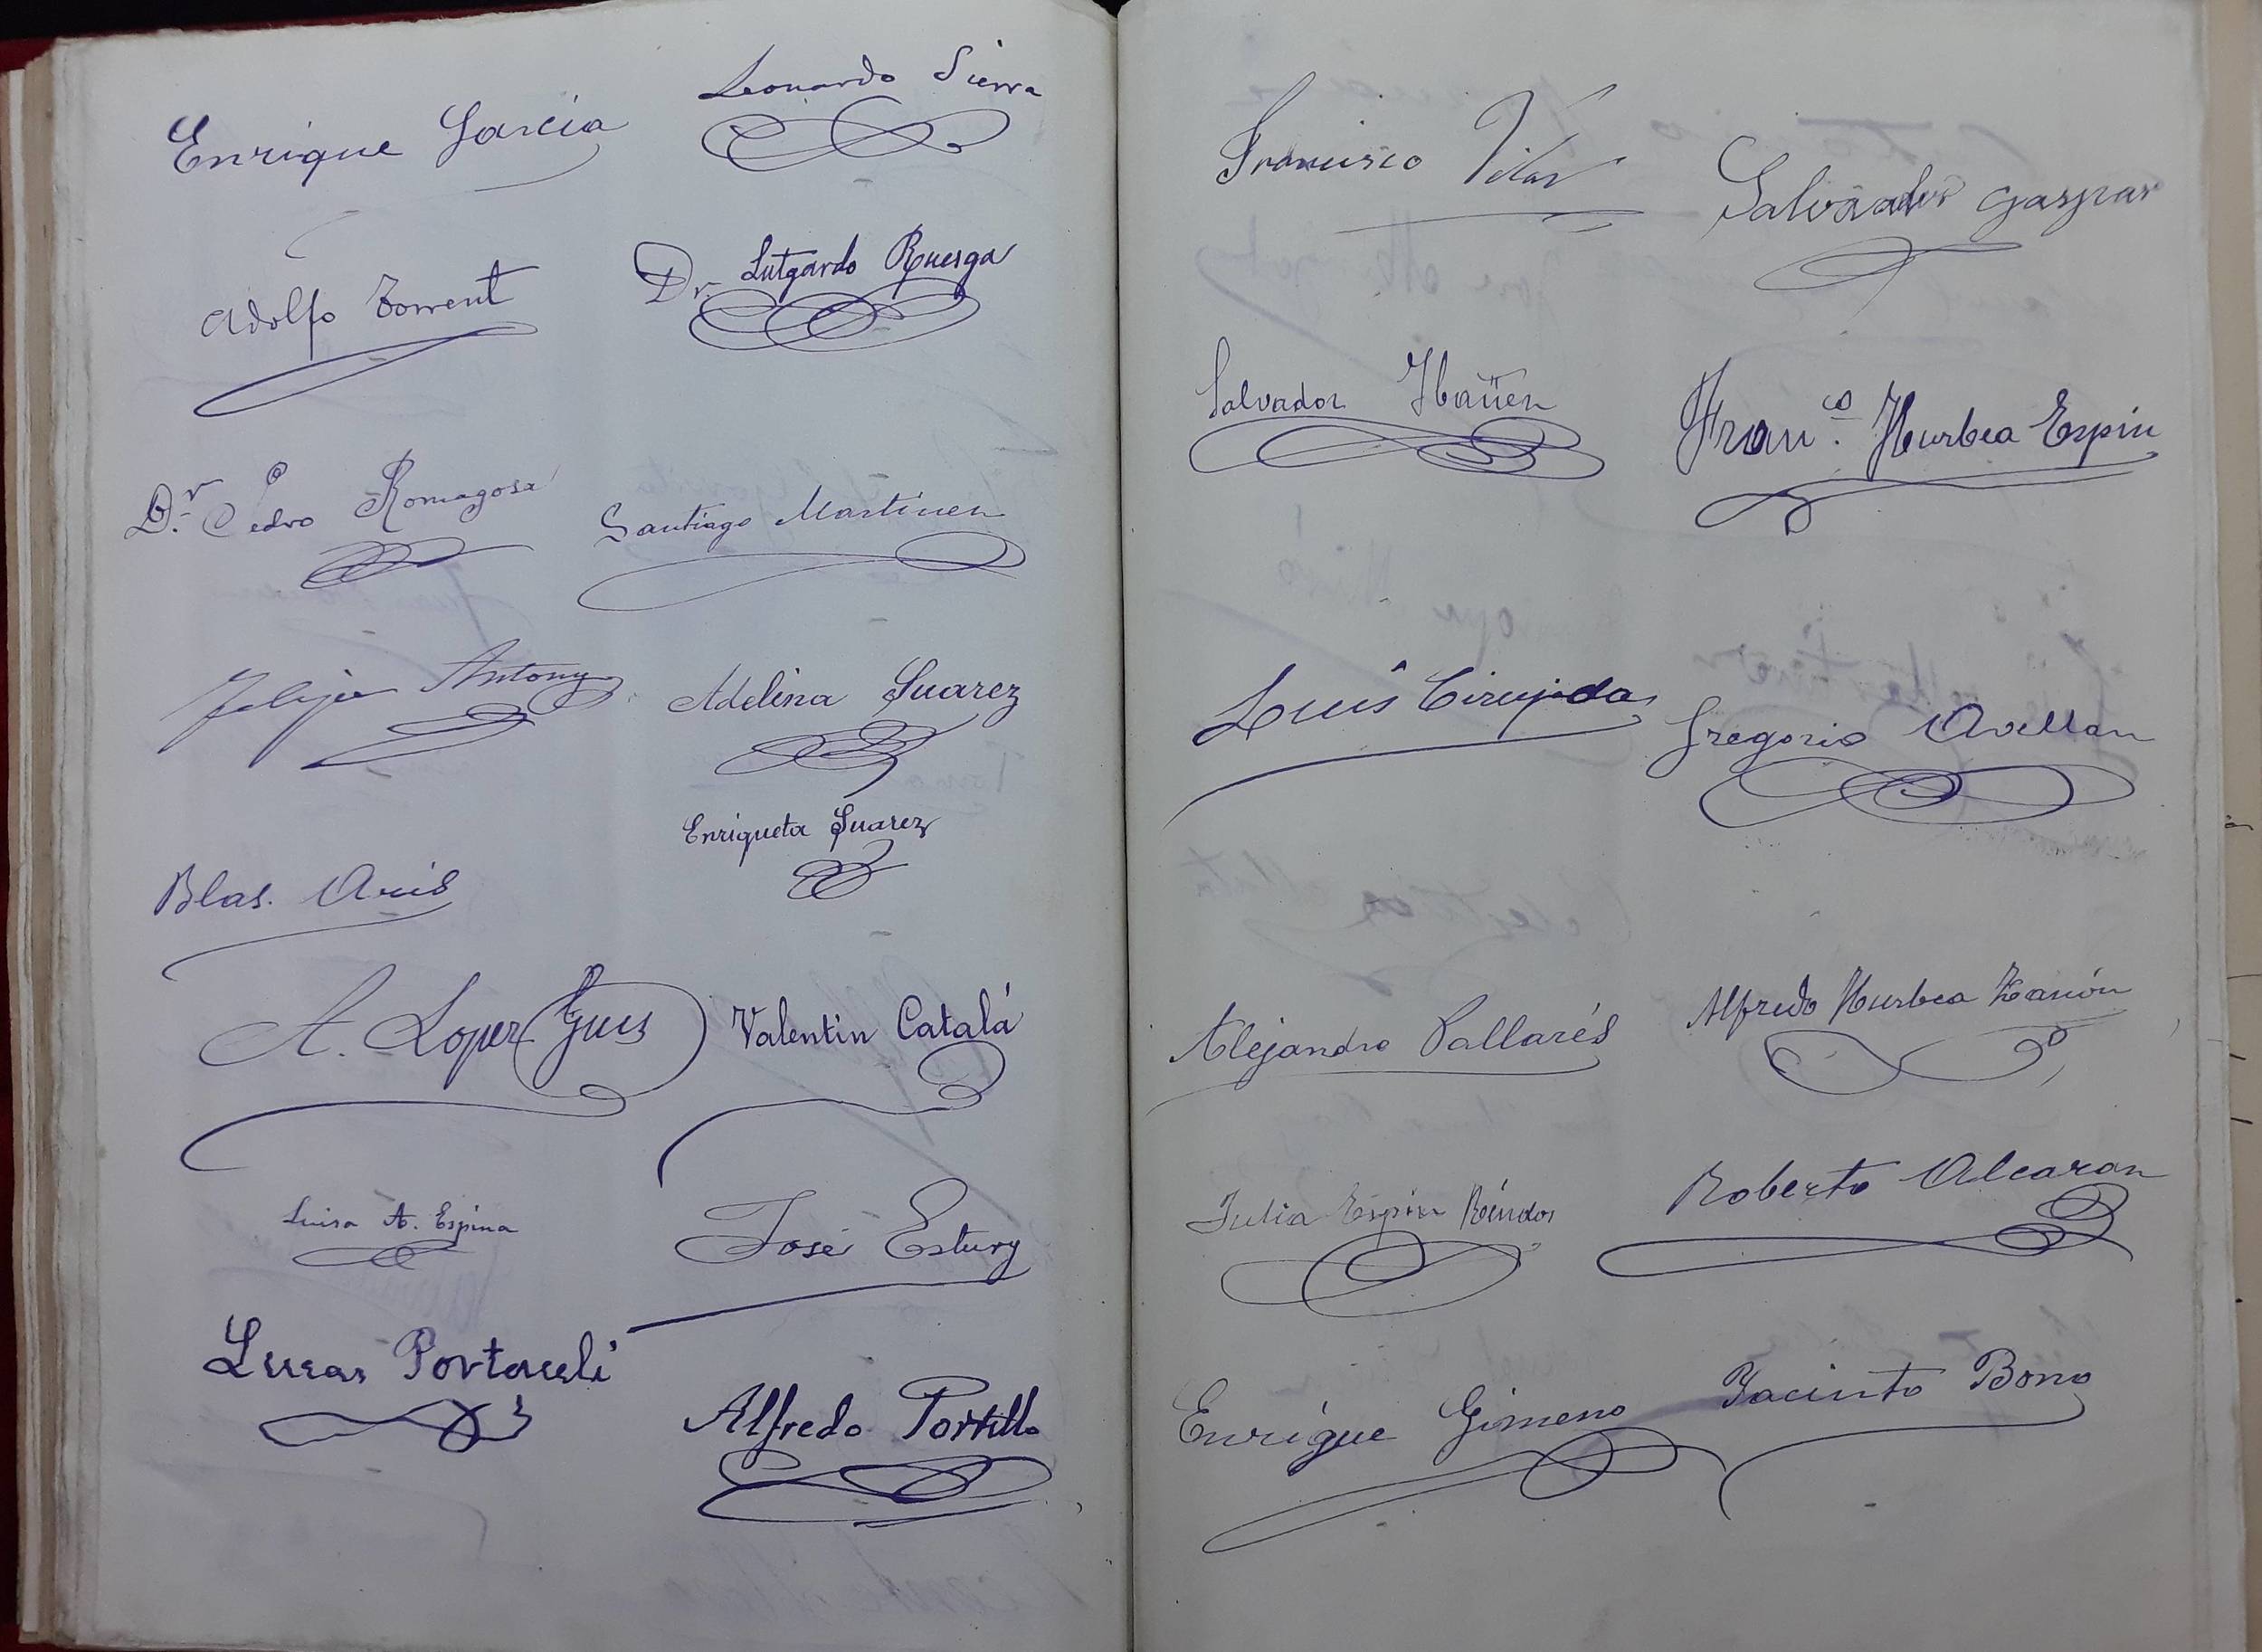 Enrique García
Leonardo Sierra
Adolfo Torrent
Dr. Lutgardo Ruesga
Dr. Pedro Romagosa
Santiago Martinez
Felipe Antony
Adelina Suarez
Enriqueta Suarez
Blas. Aris
A. Lopez Guis
Valentin Catalá
Luisa A. Espina
José Estury
Lucas Portaceli
Alfredo Portillo
Francisco Vilar
Salvador Gaspar
Salvador Ibañez
Franco. Yturbea Espín
Luis Cirujeda
Gregorio Avellan
Alejandro Pallarés
Alfredo Yturbea Zanón
Julia Espin
Roberto Alcazar
Enrique Gimeno
Jacinto Bono